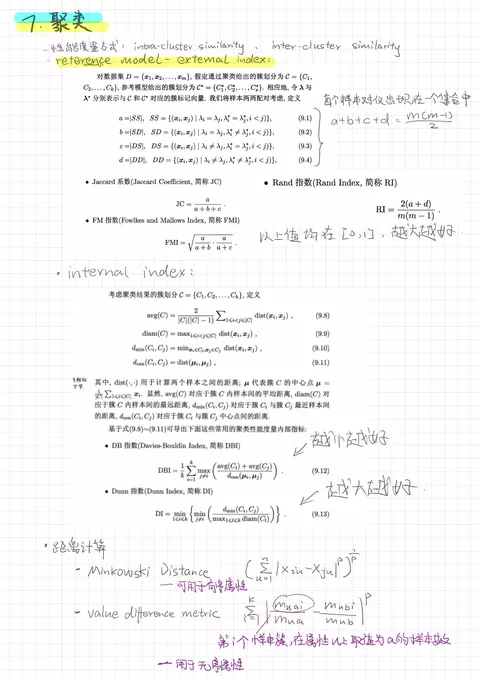 7. 聚类
- 性能度量方式: intra-cluster similarity、inter-cluster similarity
- reference model - external index:
对数据集 D = {x₁, x₂, . . . , xₘ}, 假定通过聚类给出的簇划分为 C = {C₁,
C₂, . . . , Cₖ}, 参考模型给出的簇划分为 C* = {C₁*, C₂*, . . . , Cₛ*}. 相应地, 令 λ 与
λ* 分别表示与 C 和 C* 对应的簇标记向量. 我们将样本两两配对考虑, 定义
a =|SS|, SS = {(xᵢ, xⱼ) | λᵢ = λⱼ, λᵢ* = λⱼ*, i < j)}, (9.1)
b =|SD|, SD = {(xᵢ, xⱼ) | λᵢ = λⱼ, λᵢ* ≠ λⱼ*, i < j)}, (9.2)
c =|DS|, DS = {(xᵢ, xⱼ) | λᵢ ≠ λⱼ, λᵢ* = λⱼ*, i < j)}, (9.3)
d =|DD|, DD = {(xᵢ, xⱼ) | λᵢ ≠ λⱼ, λᵢ* ≠ λⱼ*, i < j)}, (9.4)
每个样本对仅出现在一个集合中
a+b+c+d = m(m-1)/2
• Jaccard 系数(Jaccard Coefficient, 简称 JC)
JC = a/(a + b + c) .
• FM 指数(Fowlkes and Mallows Index, 简称 FMI)
FMI = √(a/(a + b) · a/(a + c)) .
• Rand 指数(Rand Index, 简称 RI)
RI = 2(a + d)/m(m − 1) .
以上值均在 [0,1], 越大越好.
· internal index:
考虑聚类结果的簇划分 C = {C₁, C₂, . . . , Cₖ}, 定义
avg(C) = 2/(|C|(|C| − 1)) ∑1≤i<j≤|C| dist(xᵢ, xⱼ) , (9.8)
diam(C) = max1≤i<j≤|C| dist(xᵢ, xⱼ) , (9.9)
dmin(Cᵢ, Cⱼ) = minxᵢ∈Cᵢ,xⱼ∈Cⱼ dist(xᵢ, xⱼ) , (9.10)
dcen(Cᵢ, Cⱼ) = dist(μᵢ, μⱼ) , (9.11)
其中, dist(·, ·) 用于计算两个样本之间的距离; μ 代表簇 C 的中心点 μ =
1/|C| ∑1≤i≤|C| xᵢ. 显然, avg(C) 对应于簇 C 内样本间的平均距离, diam(C) 对
应于簇 C 内样本间的最远距离, dmin(Cᵢ, Cⱼ) 对应于簇 Cᵢ 与簇 Cⱼ 最近样本间
的距离, dcen(Cᵢ, Cⱼ) 对应于簇 Cᵢ 与簇 Cⱼ 中心点间的距离.
基于式(9.8)~(9.11)可导出下面这些常用的聚类性能度量内部指标:
• DB 指数(Davies-Bouldin Index, 简称 DBI)
越小越好
DBI = 1/k ∑ᵢ₌₁ᵏ max j≠i ((avg(Cᵢ) + avg(Cⱼ))/dcen(μᵢ, μⱼ)) . (9.12)
• Dunn 指数(Dunn Index, 简称 DI)
越大越好.
DI = min 1≤i≤k {min j≠i (dmin(Cᵢ, Cⱼ)/max1≤l≤k diam(Cₗ))} . (9.13)
· 距离计算
- Minkowski Distance (∑ᵤ₌₁ⁿ |xᵢᵤ - xⱼᵤ|ᵖ)^(1/p)
— 可用于有序属性
- value difference metric ∑ᵢ₌₁ᵏ |mu,a,i/mu,a - mu,b,i/mu,b|ᵖ
第i个样本簇,在属性u上取值为a的样本数
— 用于无序属性